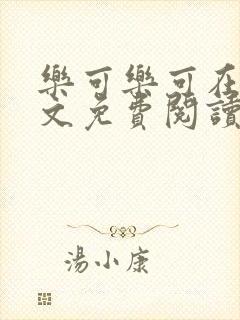 樂可樂可在
文免費閱讀
湯小康